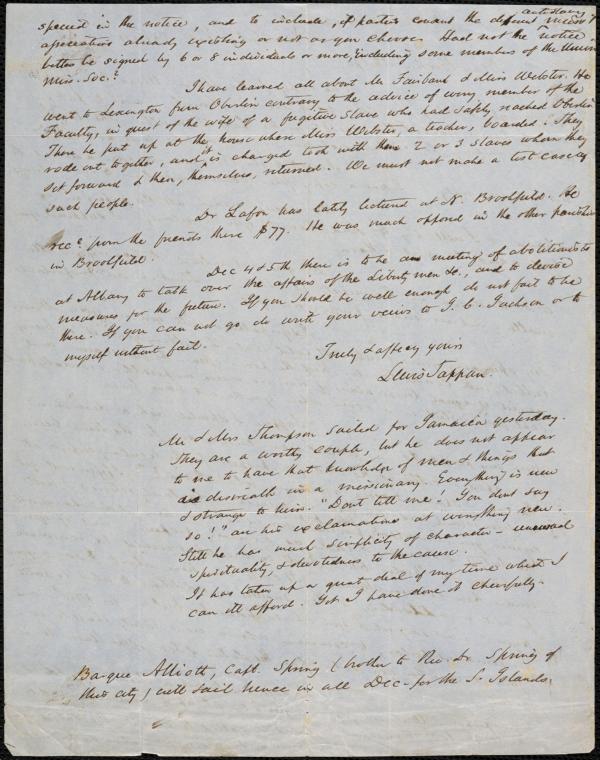 antislavery
special in the notice, and to include, if parties consent the different mission
associations already existing or not as you choose. Had not the notice
better be signed by 6 or 8 individuals or more, including some members of the Union
Miss. Soc.?
I have learned all about Mr Fairbank & Miss Webster. He
went to Lexington from Oberlin contrary to the advice of every member of the
Faculty, in quest of the wife of a fugitive slave who had safely reached Oberlin
There he put up at the house where Miss Webster, a teacher, boarded. They
rode out together, and, is charged took with them 2 or 3 slaves whom they
set forward & then, themselves, returned. We must not make a test case of
such people.
Dr Lafon has lately lectured at N. Brookfield. He
recd. from the friends there $77. He was much opposed in the other parishes
in Brookfield.
Dec 4 & 5th there is to be a meeting of abolitionists
at Albany to talk over the affairs of the Liberty men &c., and to devise
measures for the future. If you should be well enough do not fail to be
there. If you can not go do write your views to J. C. Jackson or to
myself without fail.
Truly & affecy yours
Lewis Tappan.
Mr & Mrs Thompson sailed for Jamaica yesterday.
They are a worthy couple, but he does not appear
to me to have that knowledge of men & things that
is desireable in a missionary. Everything is new
& strange to him. "Dont tell me! You dont say
so!" are his exclamations at everything new.
Still he has much simplicity of character - unusual
spirituality, & devotedness to the cause.
It has taken up a great deal of my time which I
can ill afford. Yet I have done it cheerfully.
Barque Alliott, Capt. Spring (brother to Rev. Dr. Spring of
this city) will sail hence in all Dec - for the S. Islands.